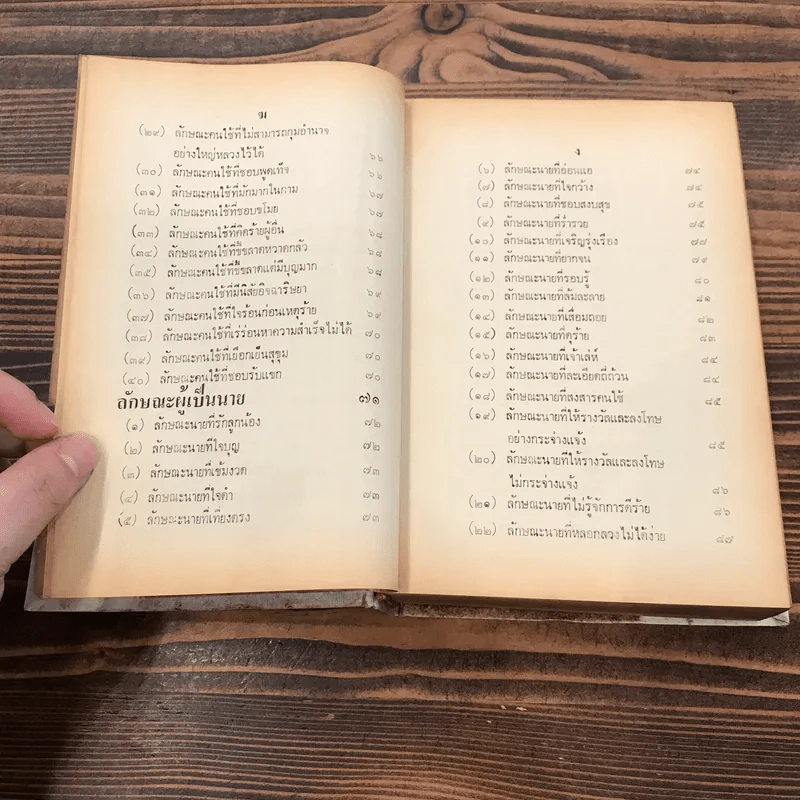 ฆ
(๒๙) ลักษณะคนใช้ที่ไม่สามารถกุมอำนาจ
อย่างใหญ่หลวงไว้ได้ ๖๖
(๓๐) ลักษณะคนใช้ที่ชอบพูดเท็จ ๖๖
(๓๑) ลักษณะคนใช้ที่มักมากในกาม ๖๗
(๓๒) ลักษณะคนใช้ที่ชอบขโมย ๖๗
(๓๓) ลักษณะคนใช้ที่คิดร้ายผู้อื่น ๖๗
(๓๔) ลักษณะคนใช้ที่ขี้ขลาดหวาดกลัว ๖๘
(๓๕) ลักษณะคนใช้ที่ขี้ขลาดแต่มีบุญมาก ๖๘
(๓๖) ลักษณะคนใช้ที่มีนิสัยอิจฉาริษยา ๖๙
(๓๗) ลักษณะคนใช้ที่ใจร้อนก่อนเหตุร้าย ๖๙
(๓๘) ลักษณะคนใช้ที่เร่ร่อนหาความสำเร็จไม่ได้ ๗๐
(๓๙) ลักษณะคนใช้ที่เยือกเย็นสุขุม ๗๐
(๔๐) ลักษณะคนใช้ที่ชอบรับแขก ๗๐
ลักษณะผู้เป็นนาย ๗๑
(๑) ลักษณะนายที่รักลูกน้อง ๗๒
(๒) ลักษณะนายที่ใจบุญ ๗๒
(๓) ลักษณะนายที่เข้มงวด ๗๓
(๔) ลักษณะนายที่ใจดำ ๗๓
(๕) ลักษณะนายที่เที่ยงตรง ๗๓
ง
(๖) ลักษณะนายที่อ่อนแอ ๗๔
(๗) ลักษณะนายที่ใจกว้าง ๗๔
(๘) ลักษณะนายที่ชอบสงบสุข ๗๕
(๙) ลักษณะนายที่ร่ำรวย ๗๕
(๑๐) ลักษณะนายที่เจริญรุ่งเรือง ๗๗
(๑๑) ลักษณะนายที่ยากจน ๗๙
(๑๒) ลักษณะนายที่รอบรู้ ๘๐
(๑๓) ลักษณะนายที่ล้มละลาย ๘๑
(๑๔) ลักษณะนายที่เสื่อมถอย ๘๒
(๑๕) ลักษณะนายที่ดุร้าย ๘๓
(๑๖) ลักษณะนายที่เจ้าเล่ห์ ๘๔
(๑๗) ลักษณะนายที่ละเอียดถี่ถ้วน ๘๔
(๑๘) ลักษณะนายที่สงสารคนใช้ ๘๕
(๑๙) ลักษณะนายที่ให้รางวัลและลงโทษ
อย่างกระจ่างแจ้ง ๘๕
(๒๐) ลักษณะนายที่ให้รางวัลและลงโทษ
ไม่กระจ่างแจ้ง ๘๖
(๒๑) ลักษณะนายที่ไม่รู้จักการดีร้าย ๘๖
(๒๒) ลักษณะนายที่หลอกลวงไม่ได้ง่าย ๘๗